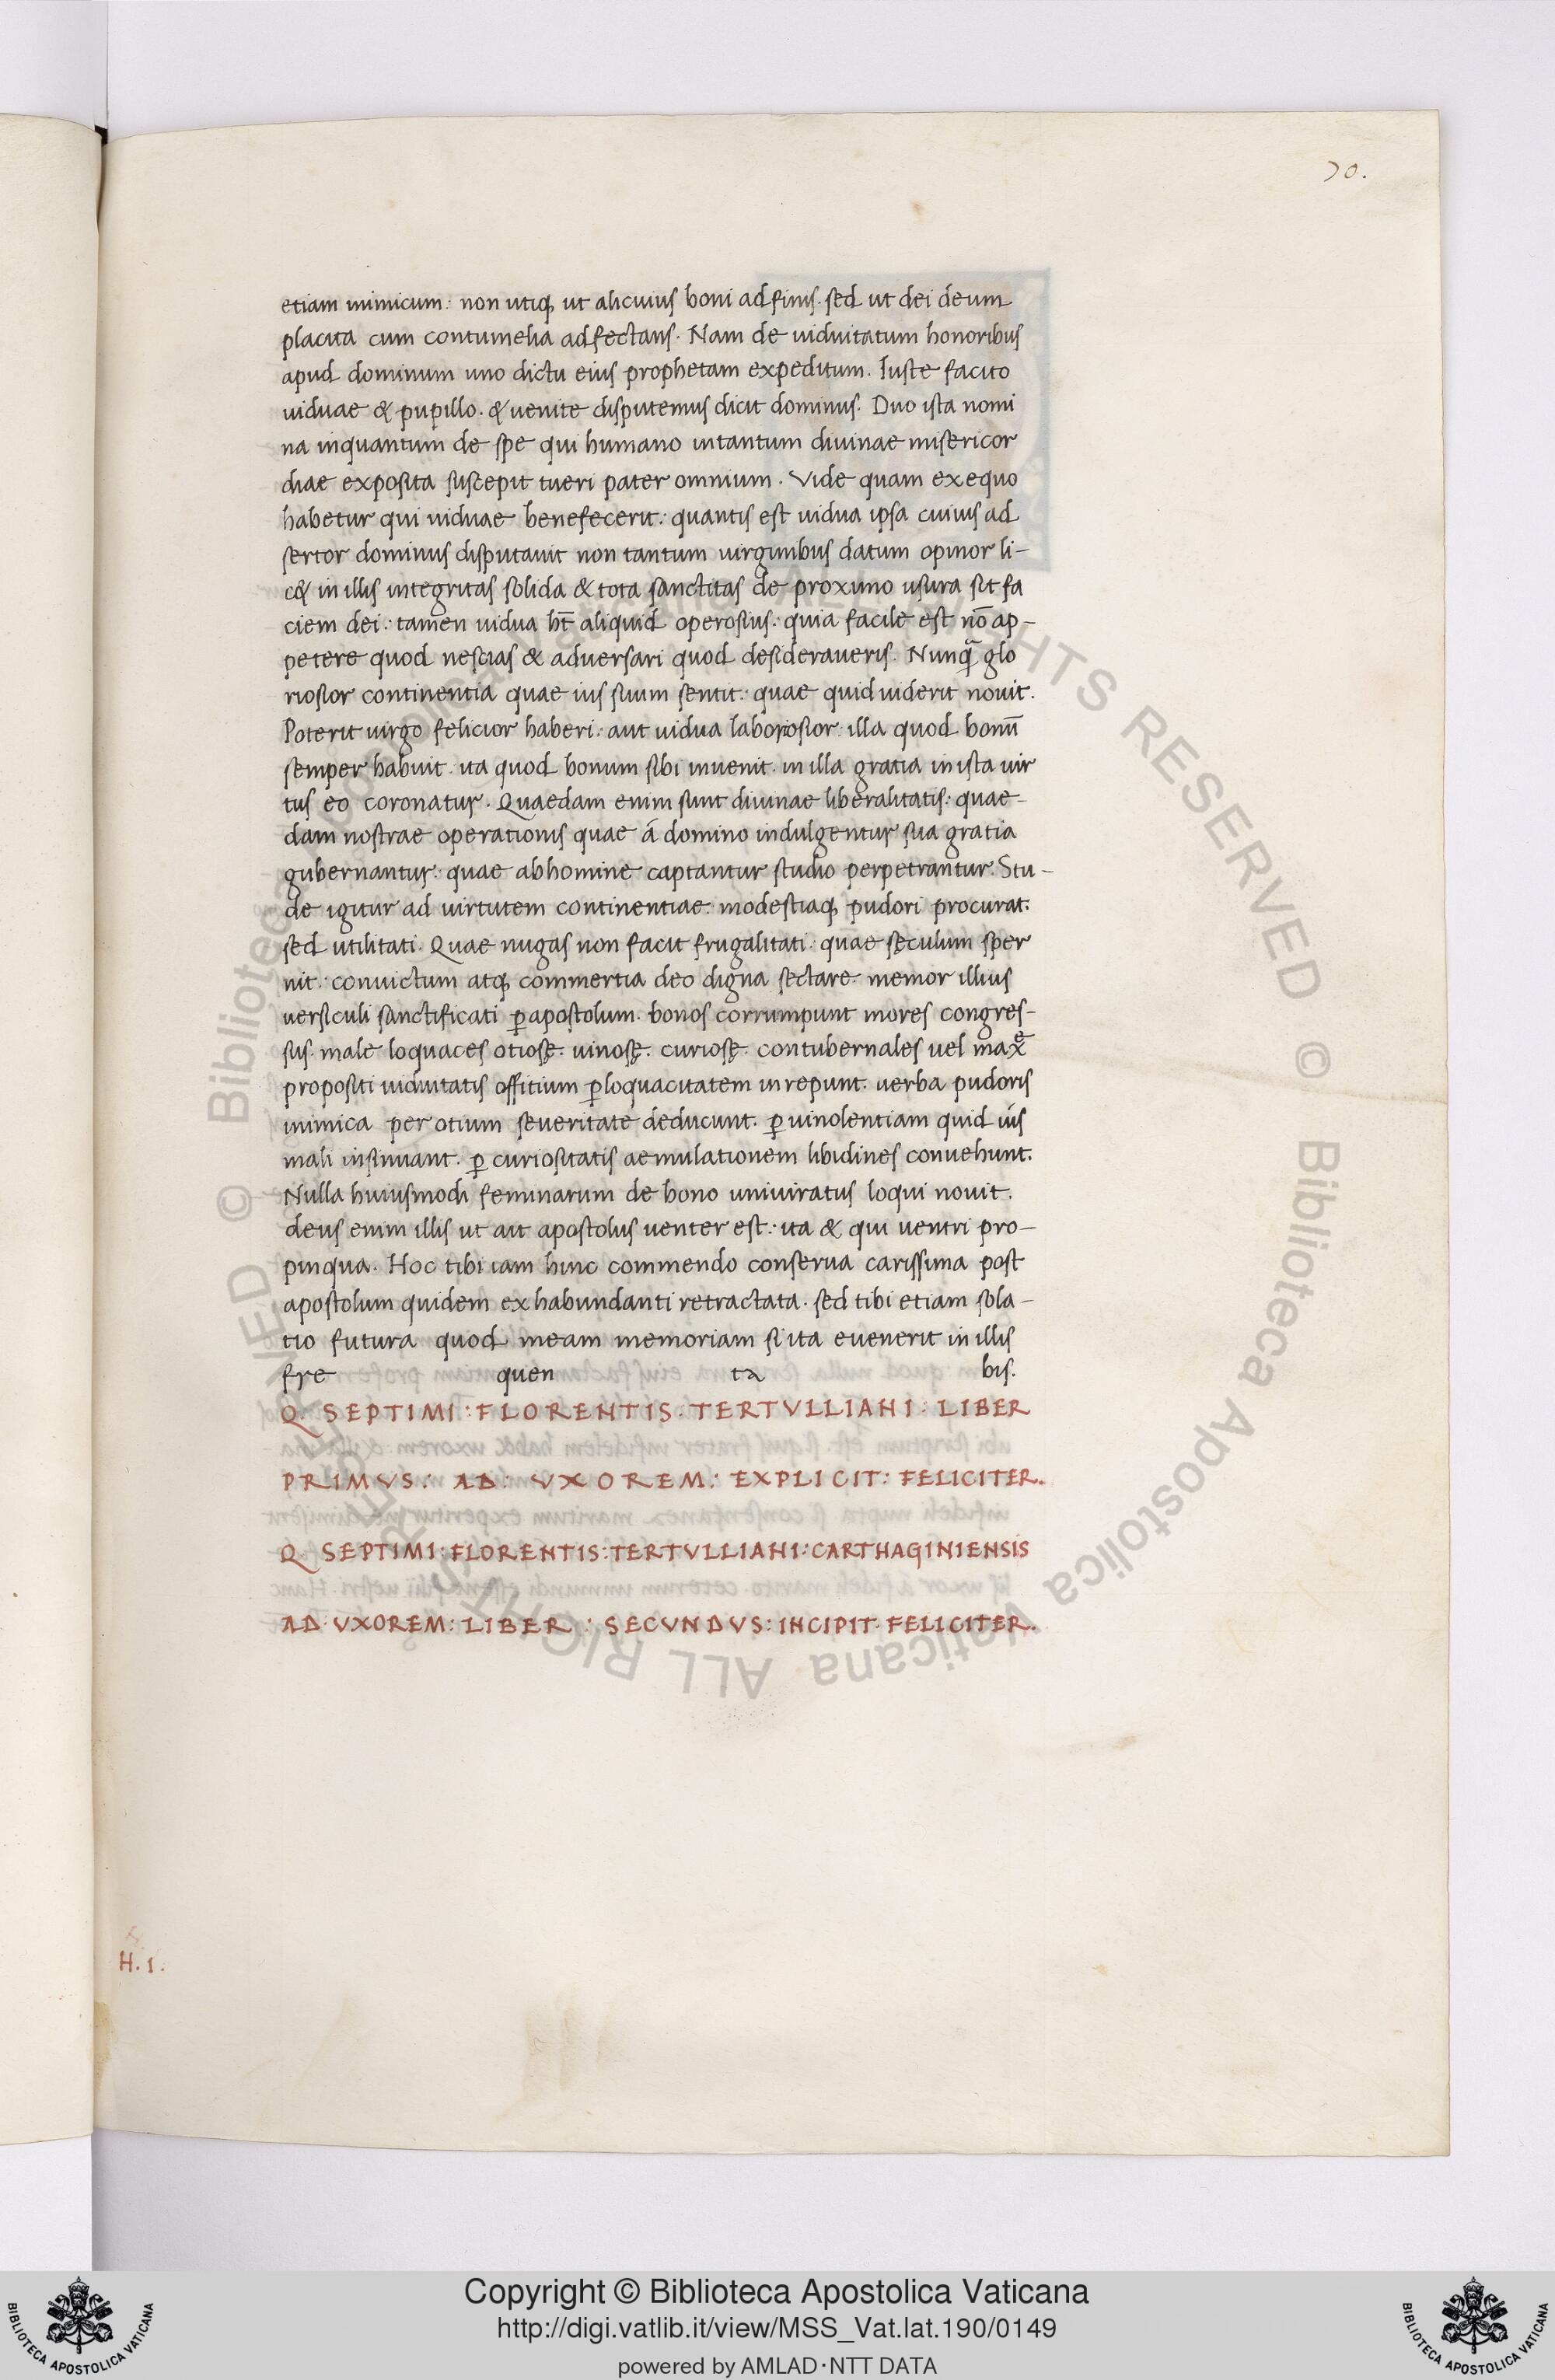 70.
etiam inimicum: non utiq; ut alicuius boni adfinis. sed ut dei deum
placita cum contumelia adfectans. Nam de viduitatum honoribus
apud dominum uno dictu eius prophetam expeditum. Iuste facito
viduae & pupillo. & uenite disputemus dicit dominus. Duo ista nomi
na inquantum de spe qui humano intantum divinae misericor
diae exposita suscepit tueri pater omnium. Vide quam exequo
habetur qui viduae benefecerit: quantis est vidua ipsa cuius ad
sertor dominus disputauit non tantum virginibus datum opinor li-
c& in illis integritas solida & tota sanctitas de proximo visura sit fa
ciem dei: tamen vidua ht̄ aliquid operosius: quia facile est nō ap-
petere quod nescias & adversari quod desideraveris. Nunq̃ glo
riosior continentia quae ius suum sentit: quae quid viderit novit.
Poterit virgo felicior haberi: aut vidua laboriosior: illa quod bonū
semper habuit. ita quod bonum sibi invenit. in illa gratia in ista vir
tus eo coronatur. Quaedam enim sunt divinae liberalitatis: quae-
dam nostrae operationis quae á domino indulgentur sua gratia
gubernantur: quae abhomine captantur studio perpetrantur. Stu-
de igitur ad virtutem continentiae: modestiaq; pudori procurat.
sed utilitati. Quae nugas non facit frugalitati: quae sęculum sper
nit: convictum atq; commertia deo digna sectare: memor illius
versiculi sanctificati ꝑapostolum. bonos corrumpunt mores congres-
sus. male loquaces otiosę. vinosę. curiosę. contubernales vel maxe
propositi viduitatis offitium ꝑloquacitatem inrepunt. verba pudoris
inimica per otium severitate deducunt. ꝑ vinolentiam quid vis
mali insinuant. ꝑ curiositatis aemulationem libidines convehunt.
Nulla huiusmodi feminarum de bono univiratus loqui novit.
deus enim illis ut ait apostolus venter est: ita & qui ventri pro-
pinqua. Hoc tibi iam hinc commendo conserva carissima post
apostolum quidem ex habundanti retractata. sed tibi etiam sola-
tio futura quod meam memoriam si ita evenerit in illis
fre quen ta bis.
Q. SEPTIMI: FLORENTIS. TERTVLLIANI: LIBER
PRIMVS: AD: VXOREM: EXPLICIT: FELICITER.
Q SEPTIMI: FLORENTIS: TERTVLLIANI: CARTHAGINIENSIS
AD VXOREM: LIBER: SECVNDVS: INCIPIT. FELICITER.
H. 1.
© Biblioteca Apostolica Vaticana ALL RIGHTS RESERVED
© Biblioteca Apostolica Vaticana ALL RIGHTS RESERVED
Copyright © Biblioteca Apostolica Vaticana
http://digi.vatlib.it/view/MSS_Vat.lat.190/0149
powered by AMLAD·NTT DATA
BIBLIOTECA APOSTOLICA VATICANA
BIBLIOTECA APOSTOLICA VATICANA